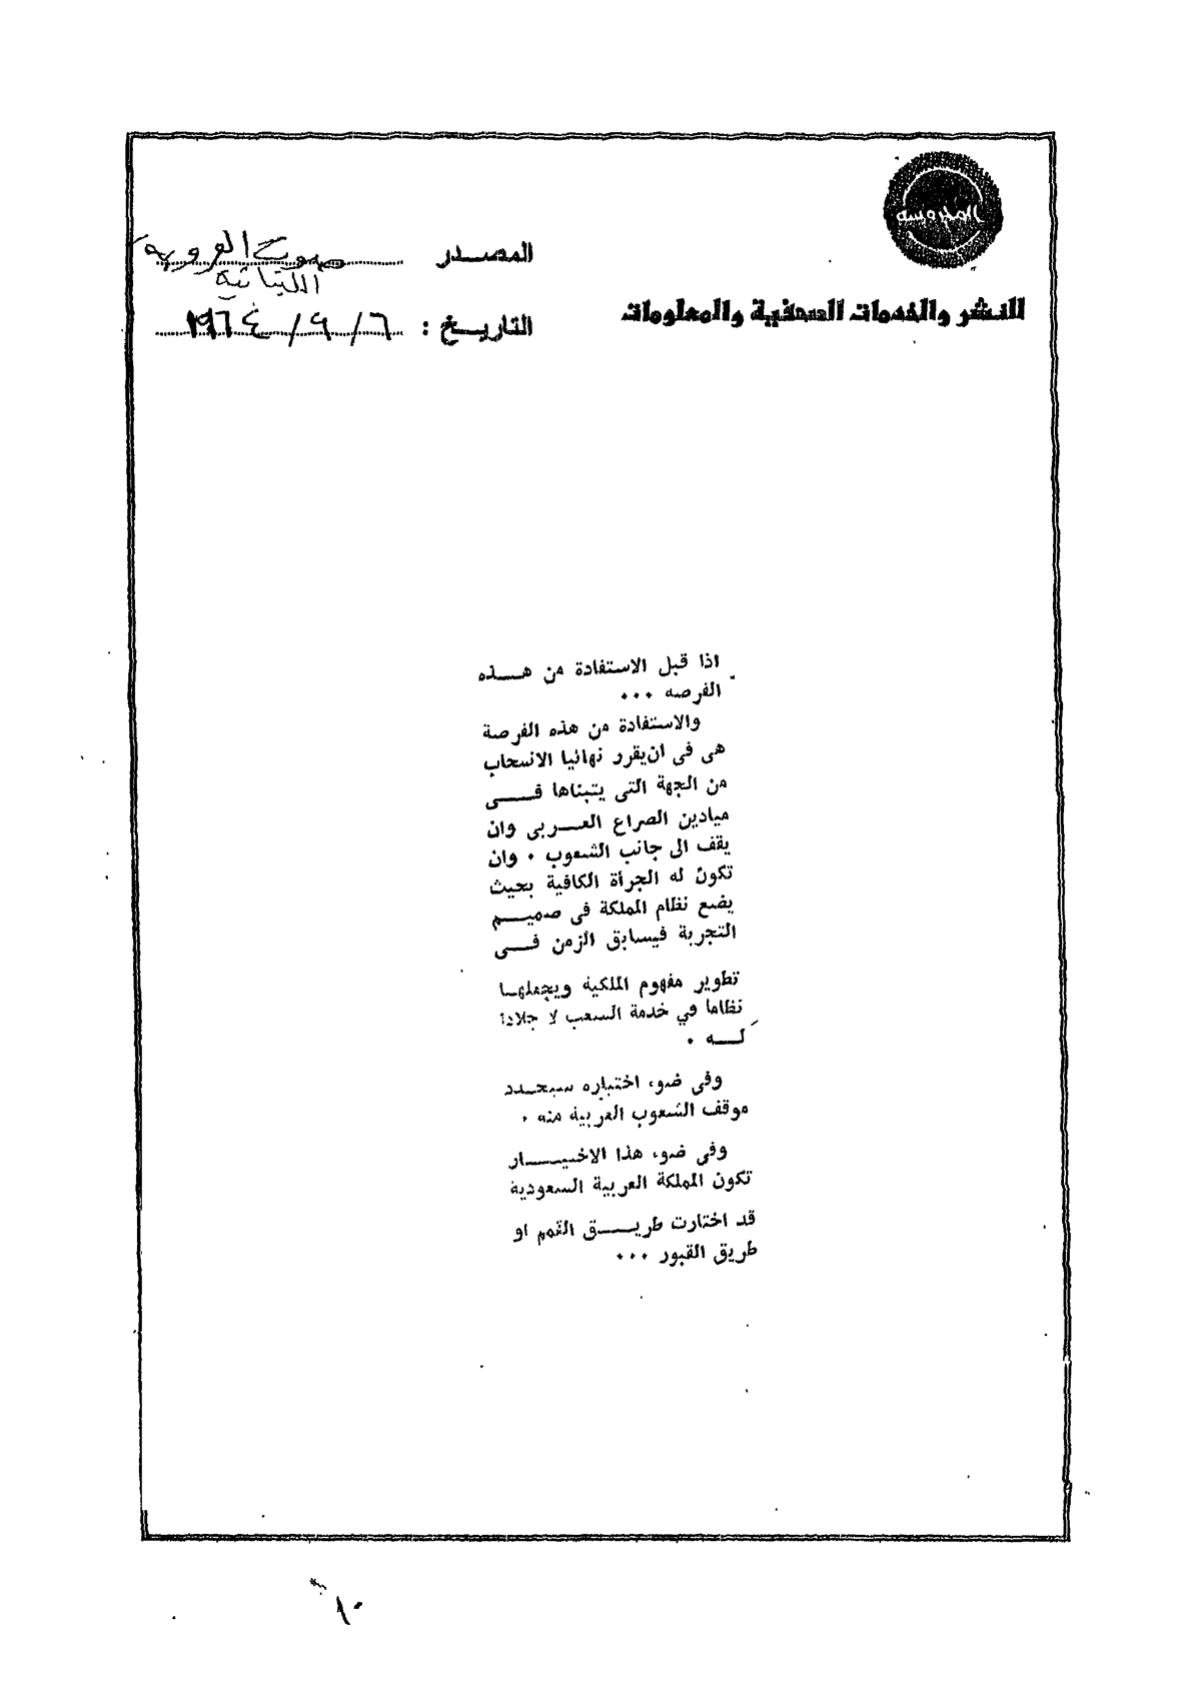 المحروسة
للنشر والخدمات الصحفية والمعلومات
المصدر صوت العروبة
اللبنانية
التاريخ : ٦ / ٩ / ١٩٦٤
اذا قبل الاستفادة من هـــذه
الفرصه ...
والاستفادة من هذه الفرصة
هى فى ان يقرر نهائيا الانسحاب
من الجهة التى يتبناها فـــى
ميادين الصراع العـــربى وان
يقف الى جانب الشعوب . وان
تكون له الجرأة الكافية بحيث
يضع نظام المملكة فى صميـــم
التجربة فيسابق الزمن فـــى
تطوير مفهوم الملكية ويجعلهـا
نظاما في خدمة الشعب لا جلادا
لـــه .
وفى ضوء اختباره سيحـدد
موقف الشعوب العربية منه .
وفى ضوء هذا الاختيـــار
تكون المملكة العربية السعودية
قد اختارت طريـــق القمم او
طريق القبور ...
١٠